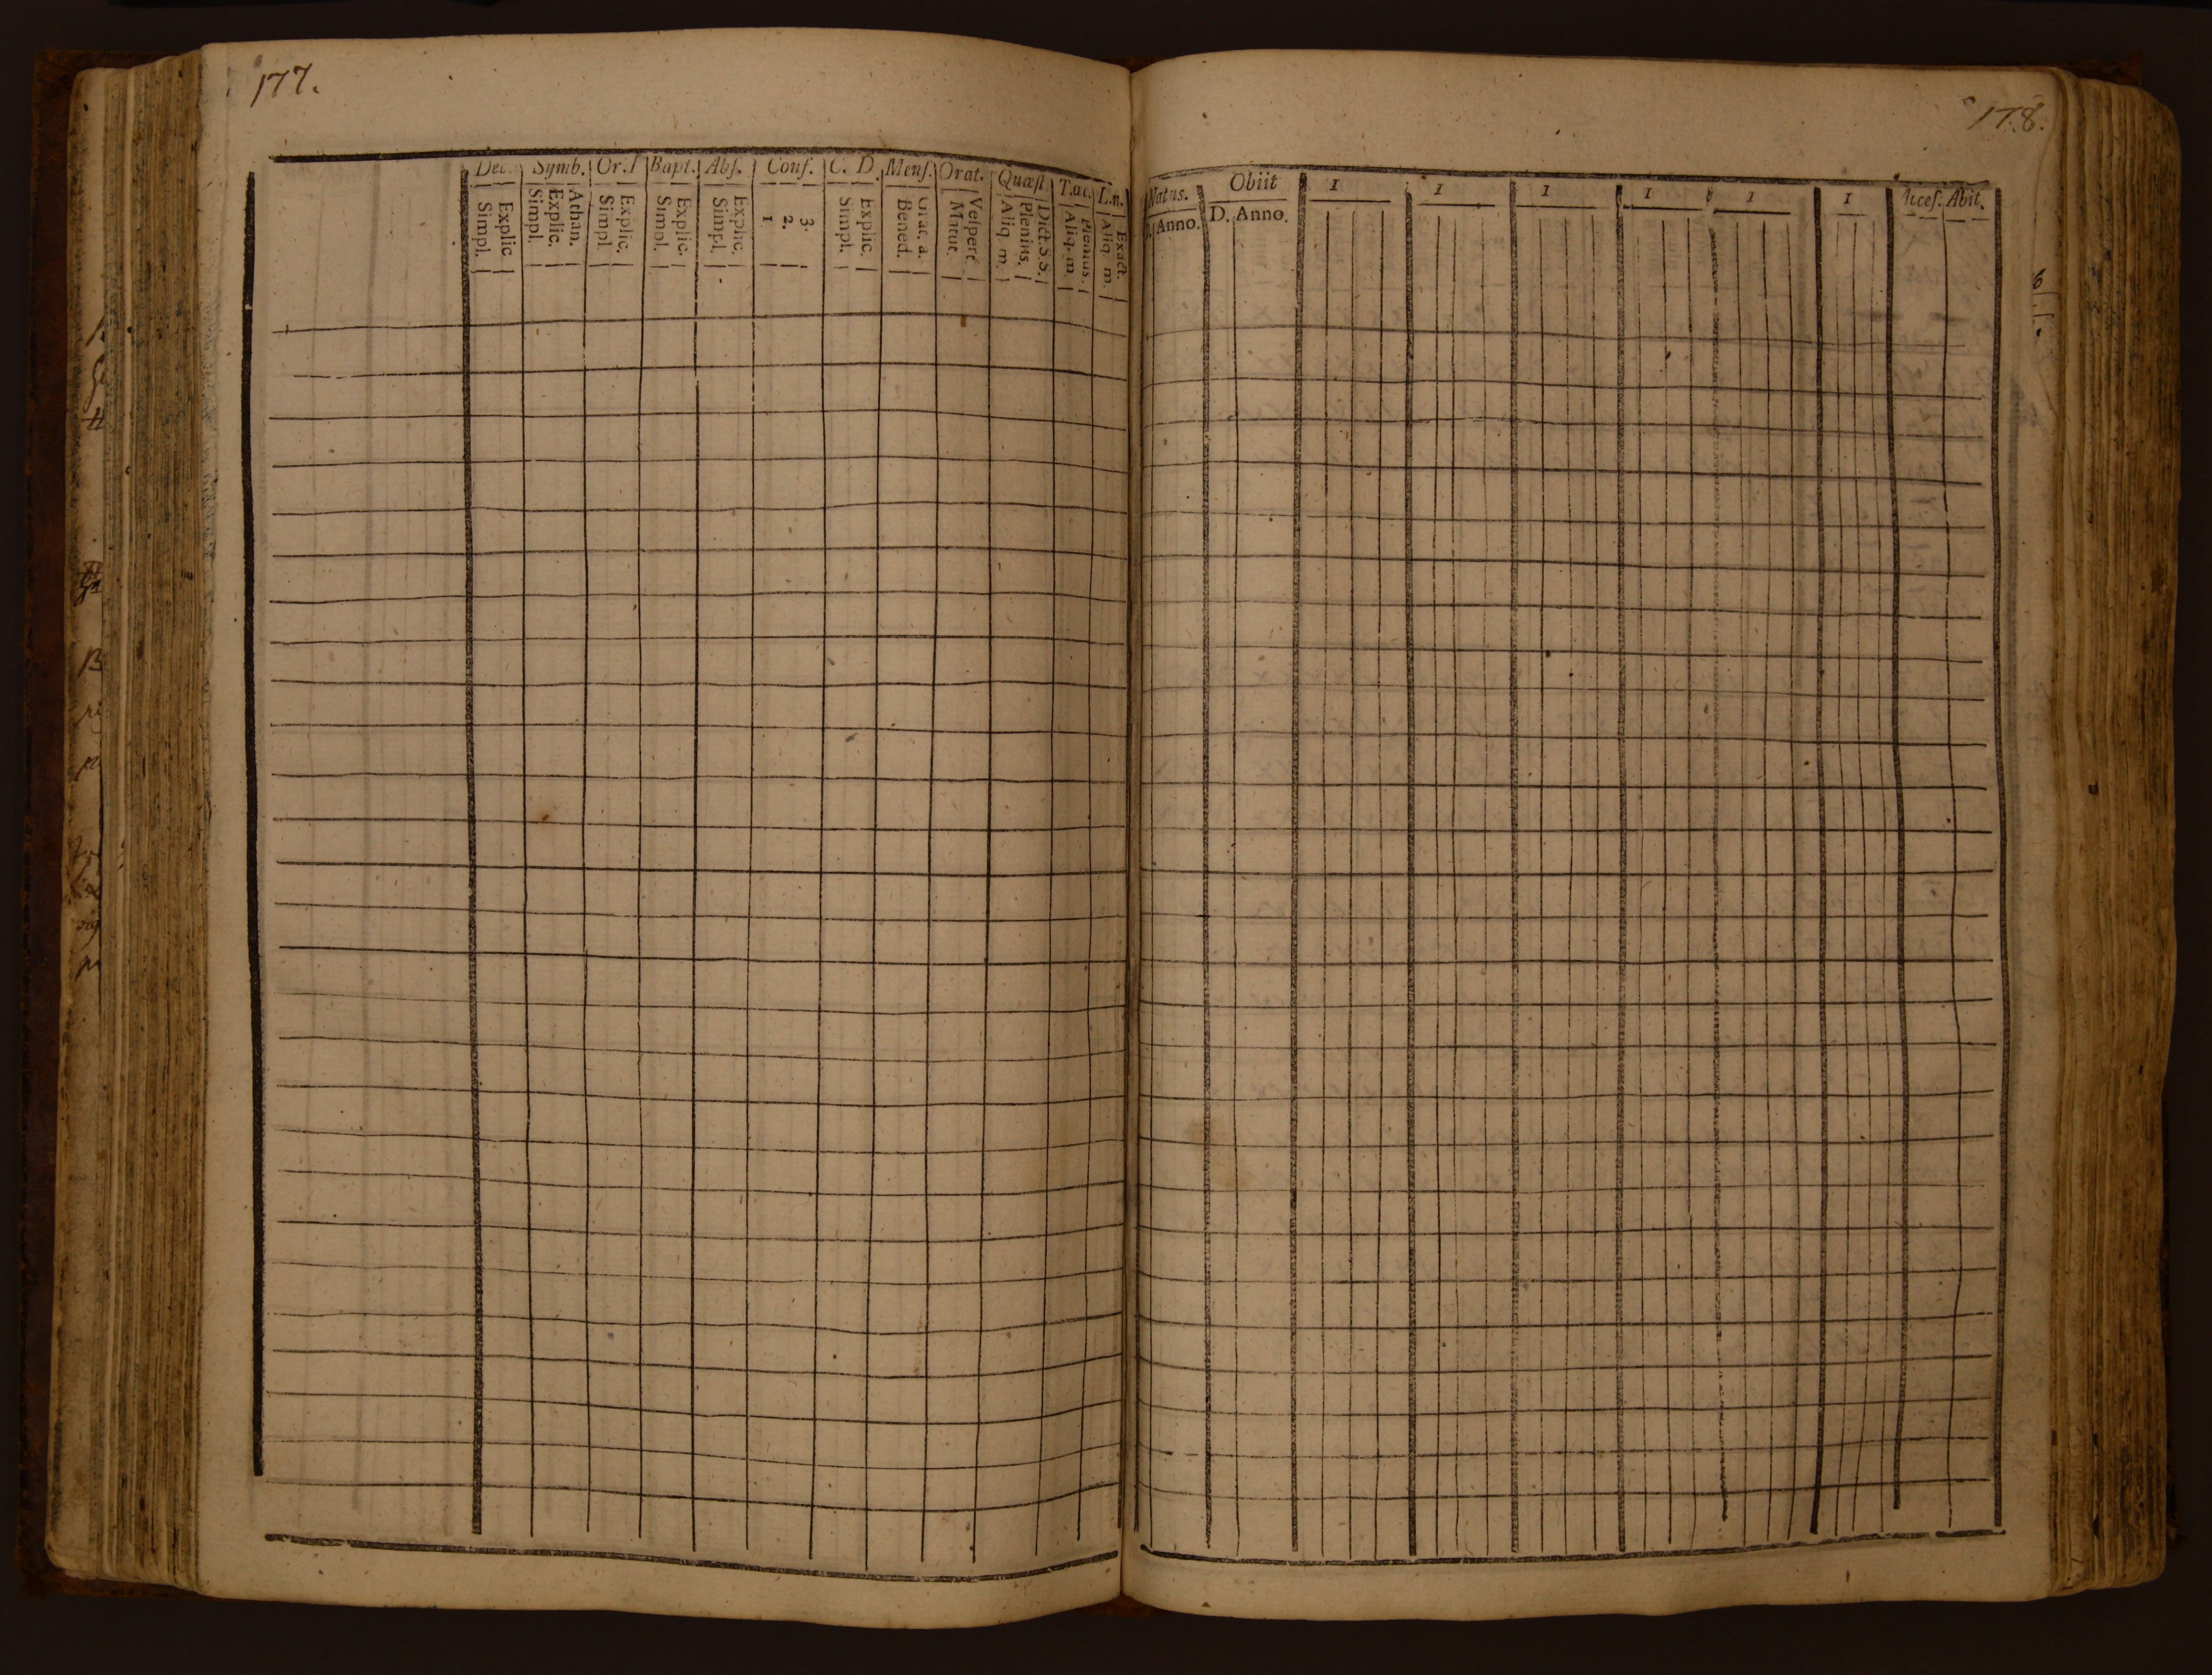 177.
Dec. Symb. Or. Bapt. Abs. Conf. C. D. Mens. Orat. Quæst. T.ac. L.n.
Explic Simpl.
Athan. Explic. Simpl.
Explic. Simpl
Explic. Simpl.
Explic. Simpl
3. 2. 1
Explic. Simpl.
Grat. a. Bened.
Vesperè Matut.
Dict.S.S. Plenius. Aliq. m.
Plenius. Aliq. m.
Exact. Aliq m.
178.
Natus. Obiit 1 1 1 1 1 1 Acces. Abit.
Anno. D. Anno.
6